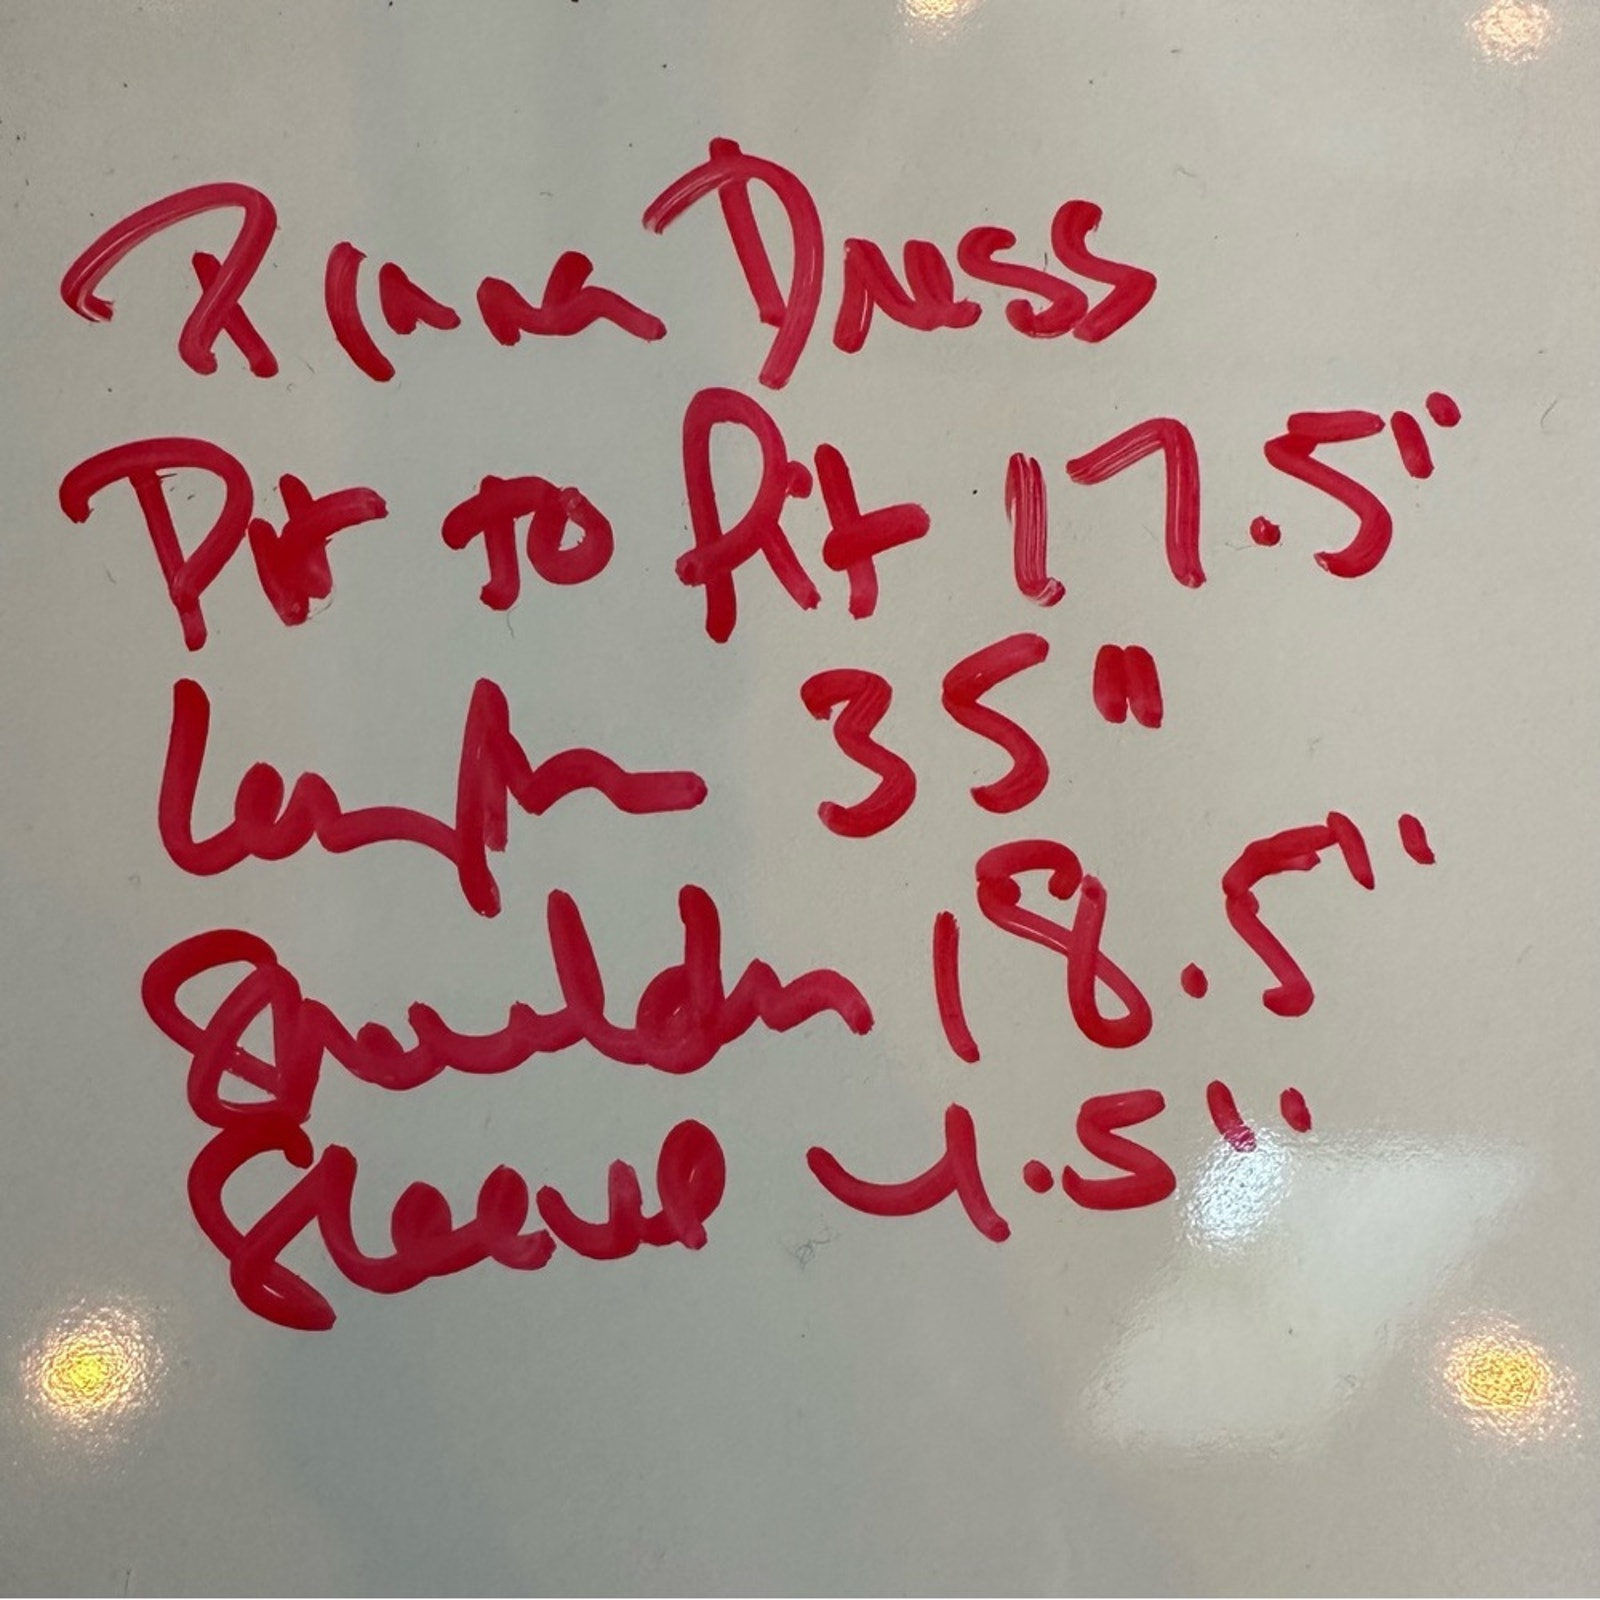 Dress
Pit to Pit 17.5"
Length 35"
Shoulder 18.5"
Sleeve 4.5"